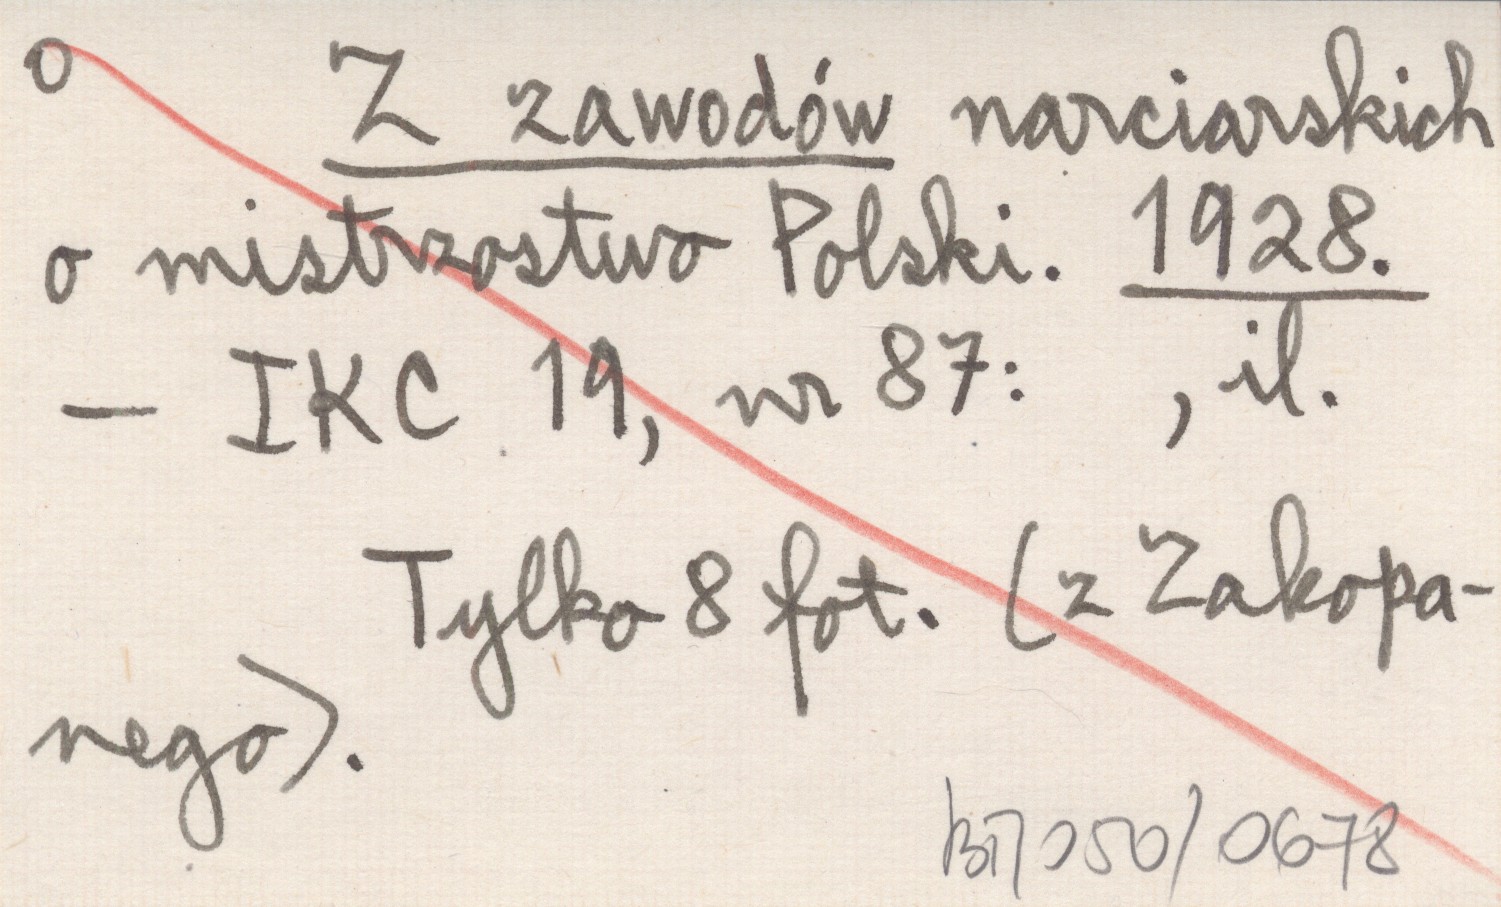 o Z zawodów narciarskich
o mistrzostwo Polski. 1928.
— IKC 19, nr 87: , il.
Tylko 8 fot. (z Zakopa-
nego).
050/0678